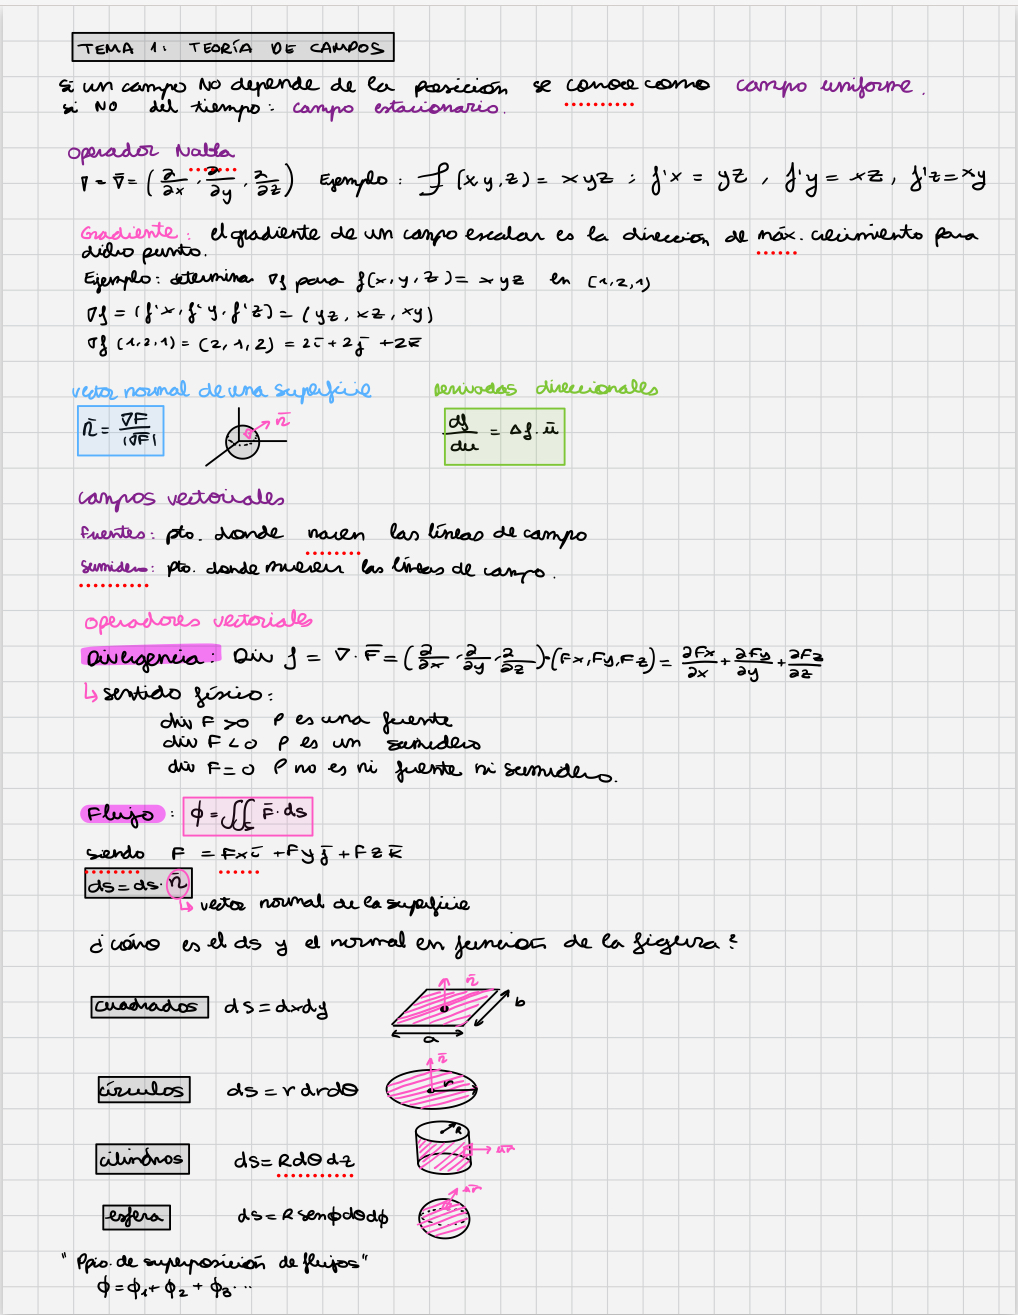 TEMA 1: TEORÍA DE CAMPOS
si un campo NO depende de la posición se conoce como campo uniforme.
si NO del tiempo: campo estacionario.
Operador Nabla
∇ = ∇̄ = (∂/∂x, ∂/∂y, ∂/∂z) Ejemplo: f(x,y,z) = xyz ; f'x = yz, f'y = xz, f'z = xy
Gradiente: el gradiente de un campo escalar es la dirección de máx. crecimiento para
dicho punto.
Ejemplo: determina ∇f para f(x,y,z) = xyz en (1,2,1)
∇f = (f'x, f'y, f'z) = (yz, xz, xy)
∇f (1,2,1) = (2,1,2) = 2ī + 2j̄ + 2k̄
vector normal de una superficie
n̄ = ∇F/|∇F|
n̄
Derivadas direccionales
df/du = Δf · ū
campos vectoriales
Fuentes: pto. donde nacen las líneas de campo
Sumidero: pto. donde mueren las líneas de campo.
operadores vectoriales
Divergencia: Div f = ∇ · F̄ = (∂/∂x, ∂/∂y, ∂/∂z)·(Fx, Fy, Fz) = ∂Fx/∂x + ∂Fy/∂y + ∂Fz/∂z
↳ sentido físico:
div F > 0 P es una fuente
div F < 0 P es un sumidero
div F = 0 P no es ni fuente ni sumidero.
Flujo: ϕ = ∬s F̄ · ds
siendo F = Fx ī + Fy j̄ + Fz k̄
ds = ds · n̄
↳ vector normal de la superficie
¿cómo es el ds y el normal en función de la figura?
cuadrados ds = dxdy
n̄
b
a
círculos ds = r dr dθ
n̄
r
cilindros ds = R dθ dz
R
ūr
esfera ds = R senϕ dθ dϕ
ūr
"Ppio. de superposición de flujos"
ϕ = ϕ1 + ϕ2 + ϕ3 ...